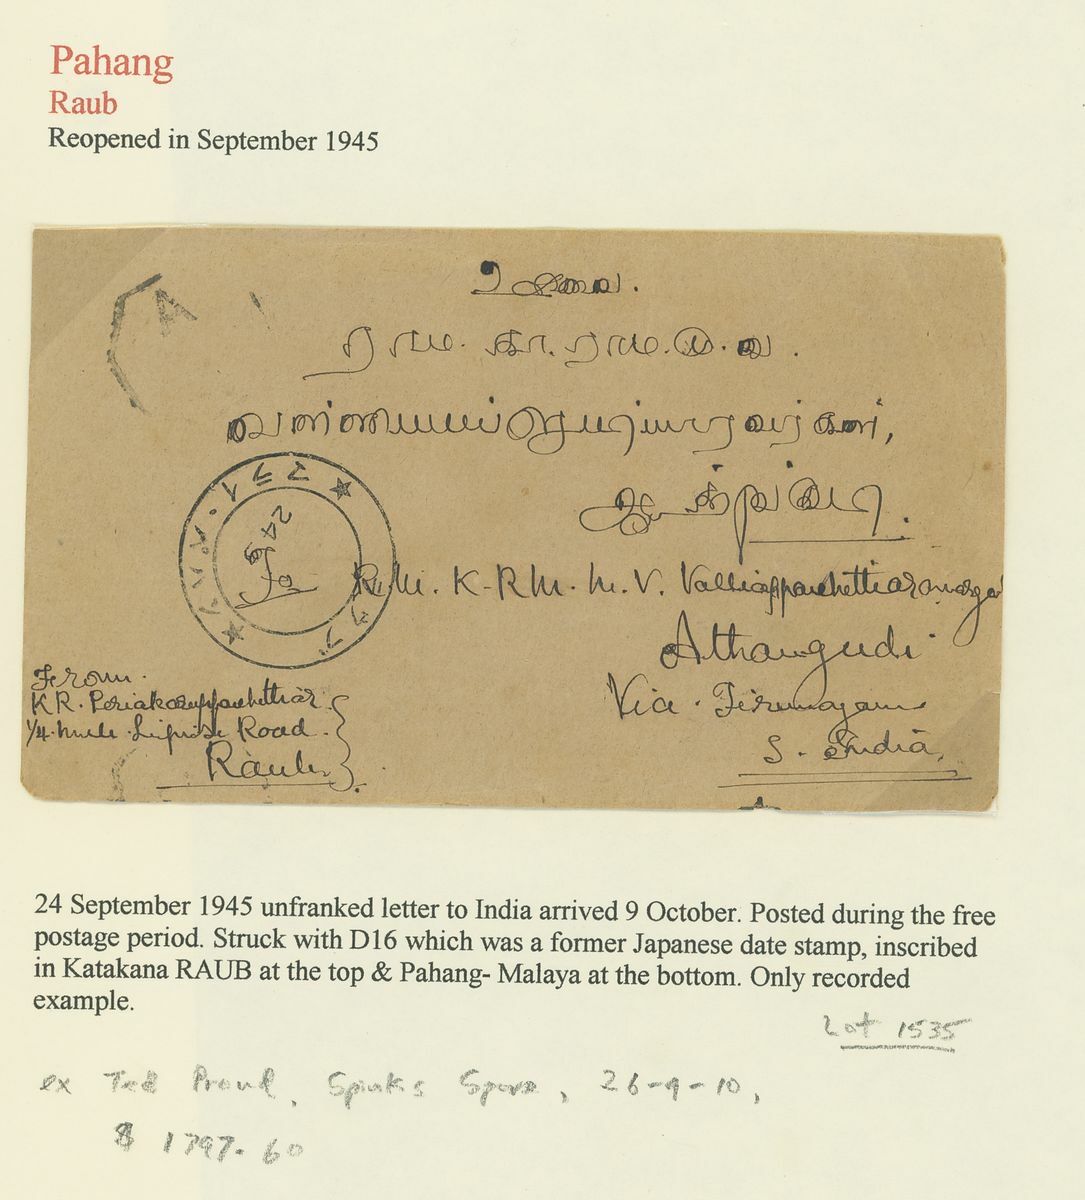 Pahang
Raub
Reopened in September 1945
A
உ
ராம. கா. ராம.
ஆத்தங்குடி.
ラブ
マライ・パハン
24
9
R.M. K-RM. M. V. Valliappachettiar
Athangudi
Via. Tirumayam
S. India,
From.
KR. Periakaruppanchettiar
1/4. mile. Lipis Road.
Raub.
24 September 1945 unfranked letter to India arrived 9 October. Posted during the free
postage period. Struck with D16 which was a former Japanese date stamp, inscribed
in Katakana RAUB at the top & Pahang- Malaya at the bottom. Only recorded
example.
Lot 1535
ex Ted Proud, Spinks Spore, 26-9-10,
$ 1797.60